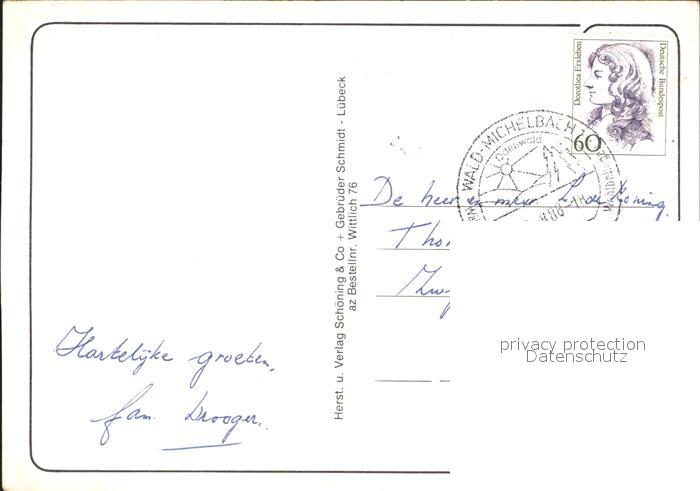 Hartelijke groeten,
fam. Drooger.
Herst. u. Verlag Schöning & Co + Gebrüder Schmidt - Lübeck
az Bestellnr. Wittlich 76
Dorothea Erxleben
Deutsche Bundespost
60
WALD-MICHELBACH 1
Odenwald
De heer en mevr. L. de Koning.
privacy protection
Datenschutz